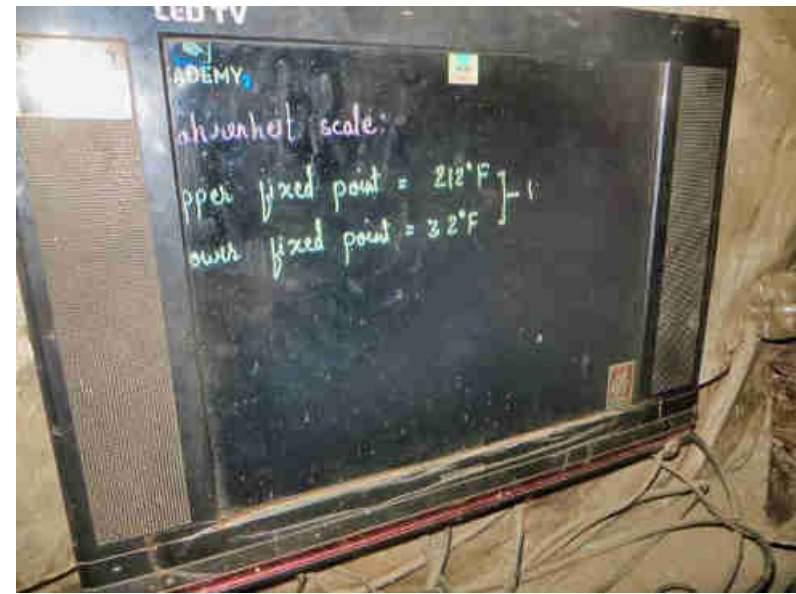 LED TV
ADEMY
ahrenheit scale:
pper fixed point = 212°F
ower fixed point = 32°F